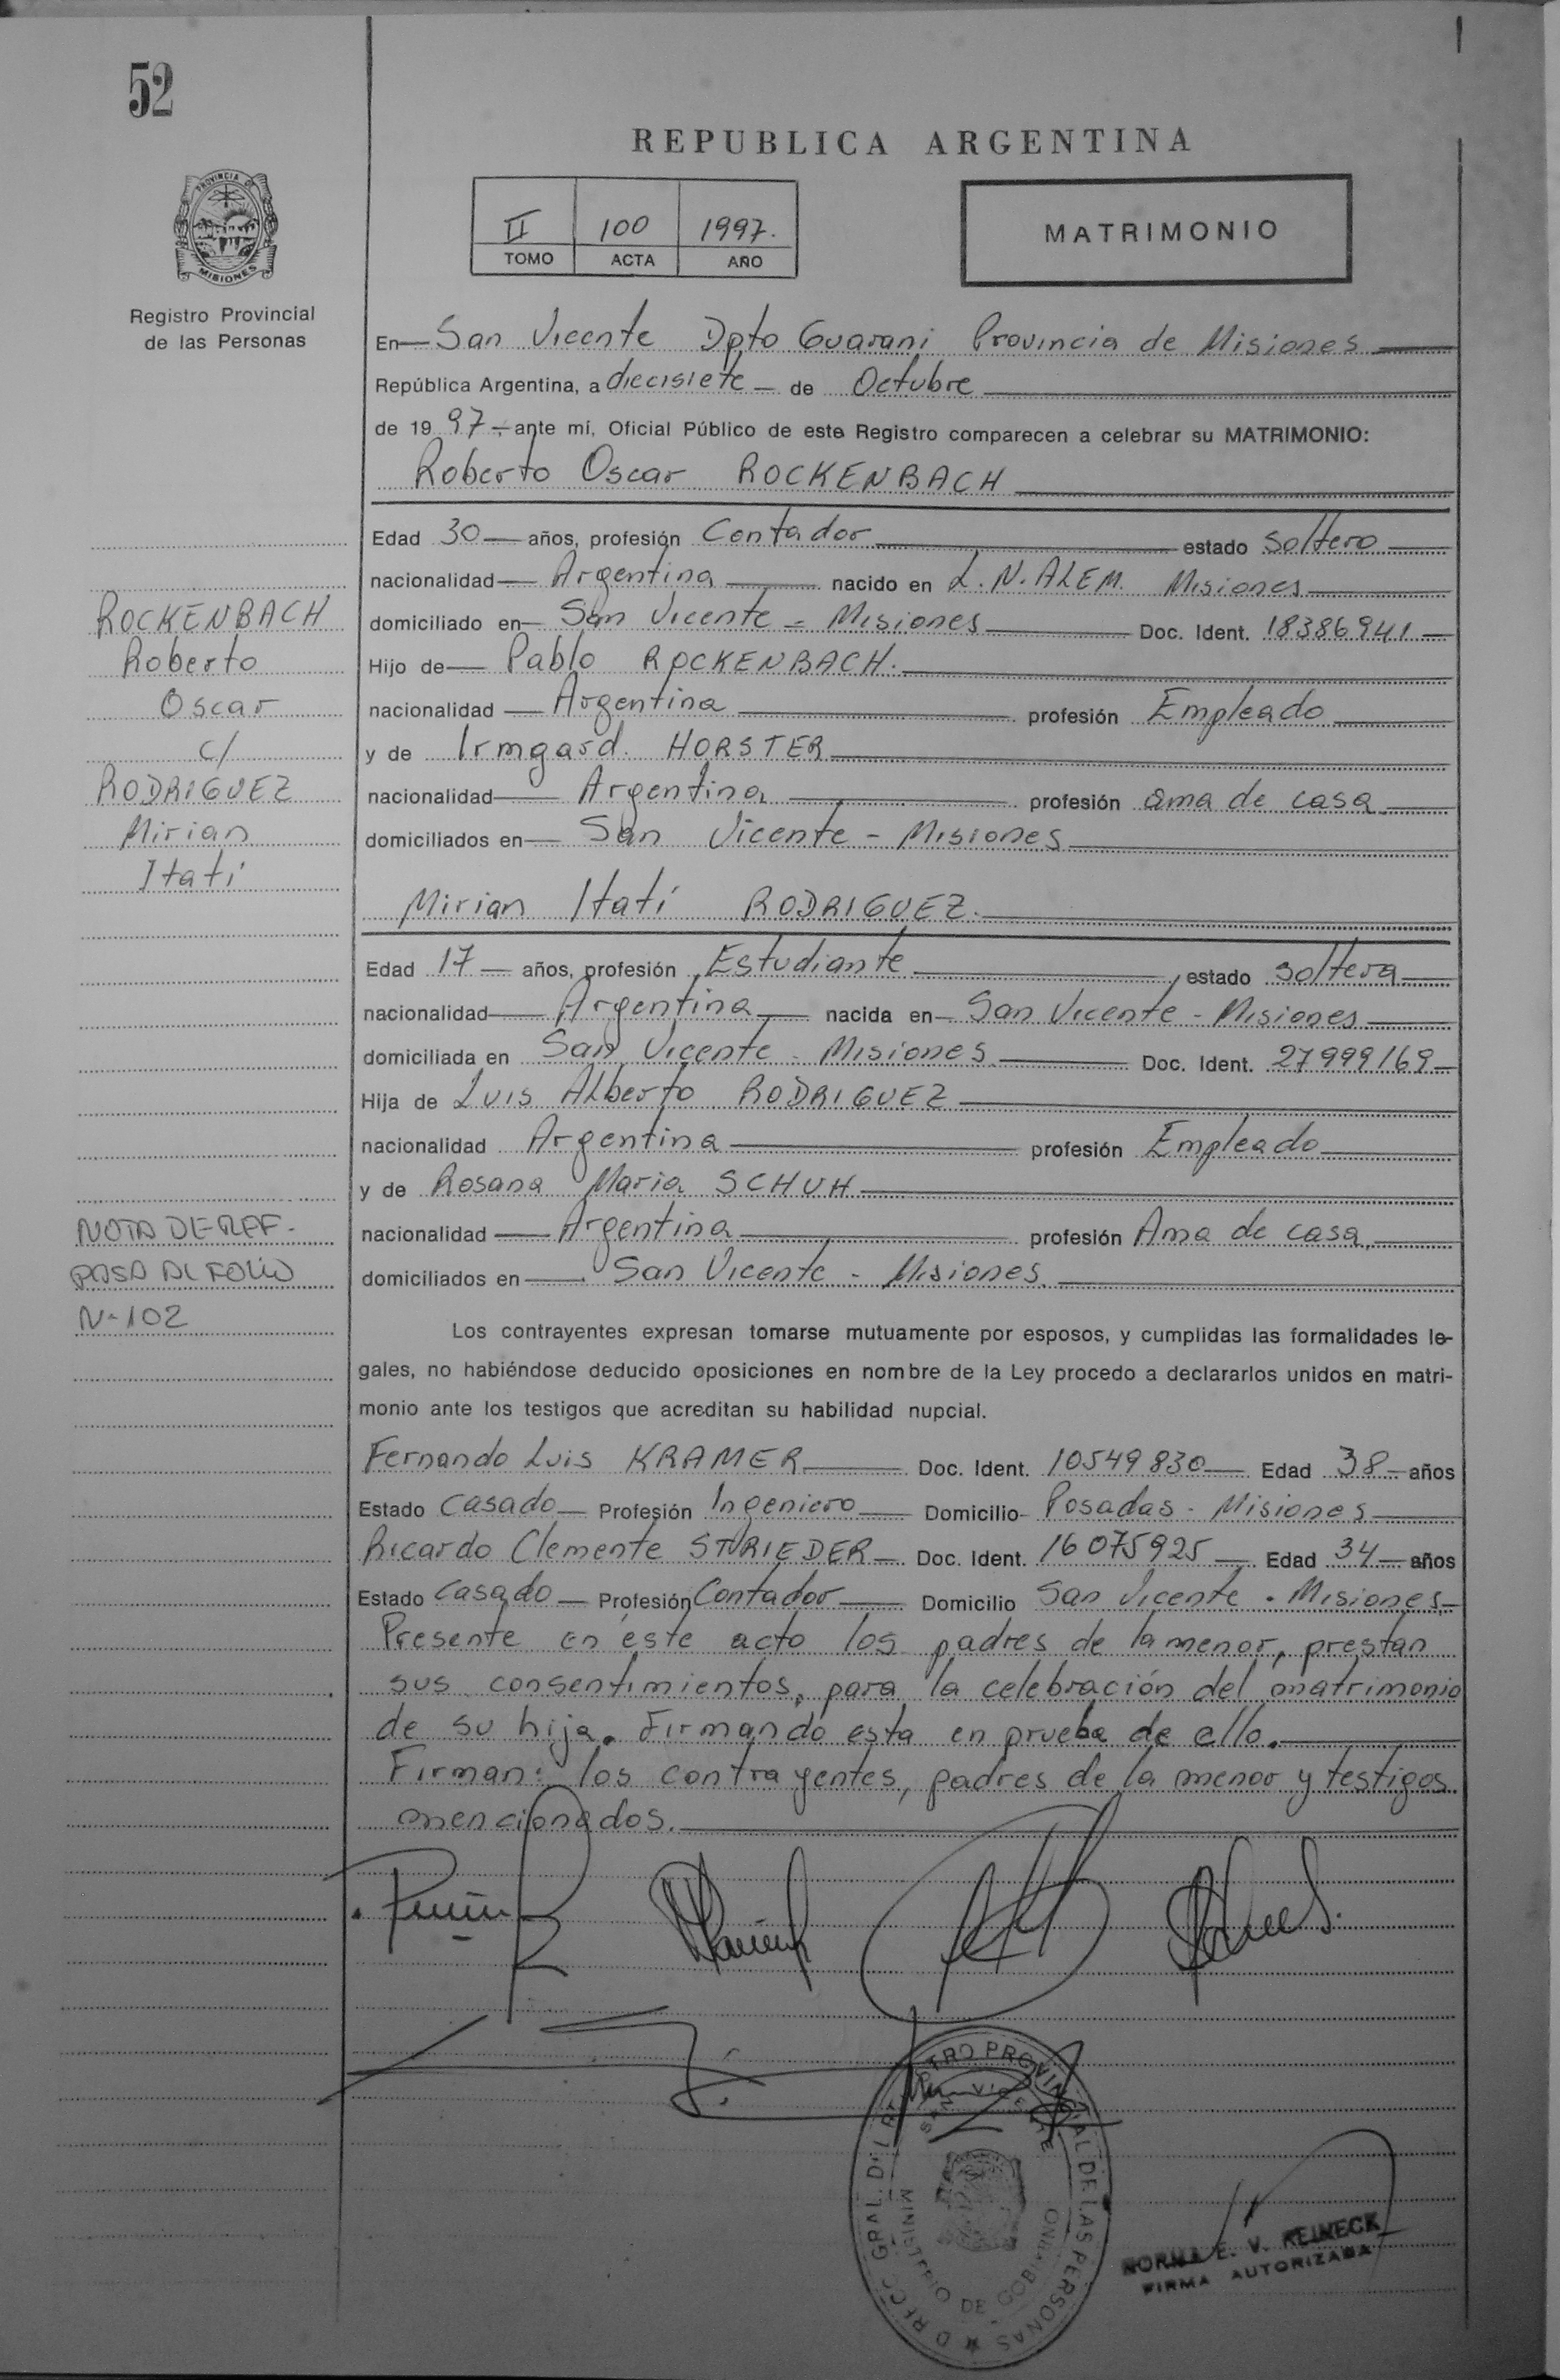 52
REPUBLICA ARGENTINA
PROVINCIA DE
MISIONES
Registro Provincial
de las Personas
II 100 1997.
TOMO ACTA AÑO
MATRIMONIO
En San Vicente Dpto Guarani Provincia de Misiones
República Argentina, a diecisiete de Octubre
de 1997 ante mí, Oficial Público de este Registro comparecen a celebrar su MATRIMONIO:
Roberto Oscar ROCKENBACH
Edad 30 años, profesión Contador estado soltero
nacionalidad Argentina nacido en L.N. ALEM. Misiones
domiciliado en San Vicente - Misiones Doc. Ident. 18386941
Hijo de Pablo ROCKENBACH.
nacionalidad Argentina profesión Empleado
y de Irmgard. HORSTER
nacionalidad Argentina profesión ama de casa
domiciliados en San Vicente - Misiones
ROCKENBACH
Roberto
Oscar
c/
RODRIGUEZ
Mirian
Itatí
Mirian Itatí RODRIGUEZ.
Edad 17 años, profesión Estudiante estado soltera
nacionalidad Argentina nacida en San Vicente - Misiones
domiciliada en San Vicente - Misiones Doc. Ident. 27999169
Hija de Luis Alberto RODRIGUEZ
nacionalidad Argentina profesión Empleado
y de Rosana Maria SCHUH
nacionalidad Argentina profesión Ama de casa
domiciliados en San Vicente - Misiones
NOTA DE REF.
PASA AL FOLIO
Nº 102
Los contrayentes expresan tomarse mutuamente por esposos, y cumplidas las formalidades le-
gales, no habiéndose deducido oposiciones en nombre de la Ley procedo a declararlos unidos en matri-
monio ante los testigos que acreditan su habilidad nupcial.
Fernando Luis KRAMER Doc. Ident. 10549830 Edad 38 años
Estado Casado Profesión Ingeniero Domicilio Posadas - Misiones
Ricardo Clemente STRIEDER Doc. Ident. 16075925 Edad 34 años
Estado Casado Profesión Contador Domicilio San Vicente - Misiones
Presente en éste acto los padres de la menor, prestan
sus consentimientos, para la celebración del matrimonio
de su hija. Firmando esta en prueba de ello.
Firman: los contrayentes, padres de la menor y testigos
mencionados.
DIRECC. GRAL. DEL REGISTRO PROVINCIAL DE LAS PERSONAS
SAN VICENTE
MINISTERIO DE GOBIERNO
NORMA E. V. REINECK
FIRMA AUTORIZADA